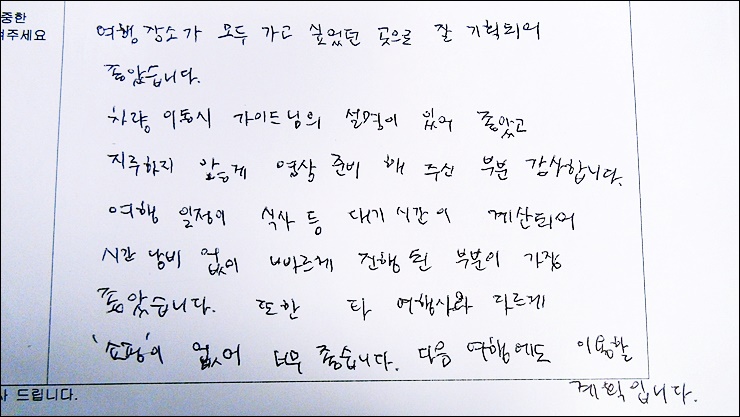 중한
겨주세요
여행 장소가 모두 가고 싶었던 곳으로 잘 기획되어
좋았습니다.
차량 이동시 가이드님의 설명이 있어 좋았고
지루하지 않게 영상 준비 해 주신 부분 감사합니다.
여행 일정이 식사 등 대기 시간이 계산되어
시간 낭비 없이 빠르게 진행된 부분이 가장
좋았습니다. 또한 타 여행사와 다르게
'쇼핑'이 없어 너무 좋습니다. 다음 여행에도 이용할
계획입니다.
사 드립니다.